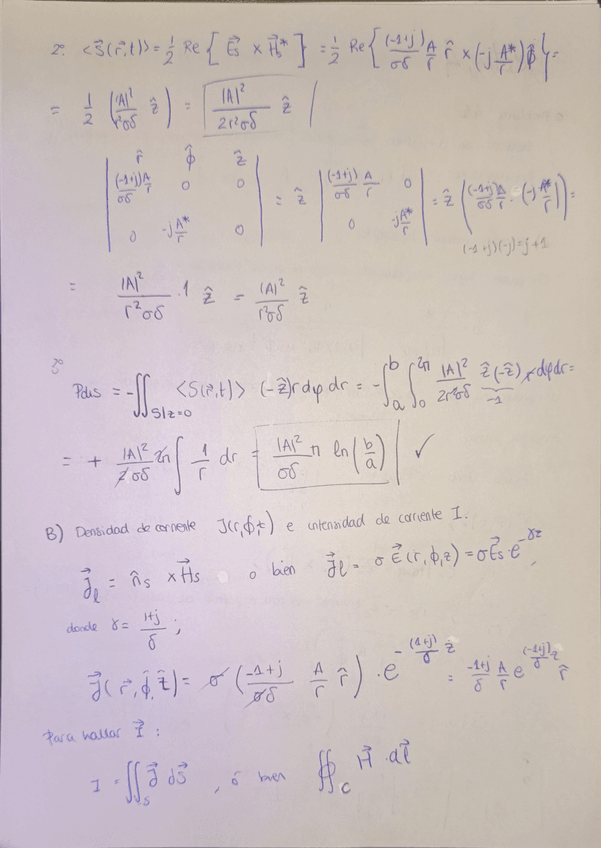 2º. <S⃗(r⃗,t)> = 1/2 Re { E⃗s × H⃗s* } = 1/2 Re { (-1+j)/σδ A/r r̂ × (-j A*/r) φ̂ } =
= 1/2 ( |A|²/r²σδ ẑ ) = |A|²/2r²σδ ẑ
r̂ φ̂ ẑ
| (-1+j)/σδ A/r 0 0 | = ẑ | (-1+j)/σδ A/r 0 | = ẑ ( (-1+j)/σδ A/r · (-j A*/r) ) =
| 0 -j A*/r 0 | | 0 -j A*/r |
(-1+j)(-j) = j+1
= |A|²/r²σδ · 1 ẑ = |A|²/r²σδ ẑ
3º
Pdis = - ∬S|z=0 <S(r⃗,t)> (-ẑ) r dφ dr = - ∫a^b ∫0^2π |A|²/2r²σδ ẑ(-ẑ) r dφ dr =
-1
= + |A|²/2σδ 2π ∫ 1/r dr = |A|²/σδ π ln(b/a) ✓
B) Densidad de corriente J(r,φ,t) e intensidad de corriente I.
J⃗l = n̂s × H⃗s ó bien J⃗l = σ E⃗(r,φ,z) = σ E⃗s · e^-γz,
donde γ = 1+j/δ ;
J⃗(r⃗,φ̂,ẑ) = σ ( -1+j/σδ A/r r̂ ) · e^-(1+j)/δ z = -1+j/δ A/r e^(-1+j)/δ z r̂
Para hallar I⃗ :
I = ∬S J⃗ dS⃗ , ó bien ∯C H⃗ · dl⃗